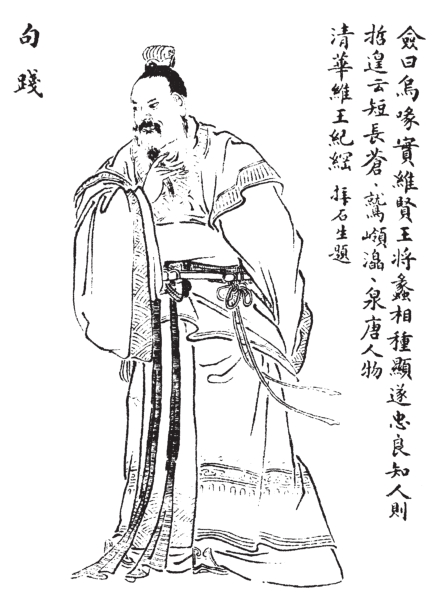 句踐
僉曰烏喙實維賢王將蠡相種顯遂忠良知人則
哲遑云短長蒼〻鷲嶺濤〻泉唐人物
清華維王紀綱 拜石生題